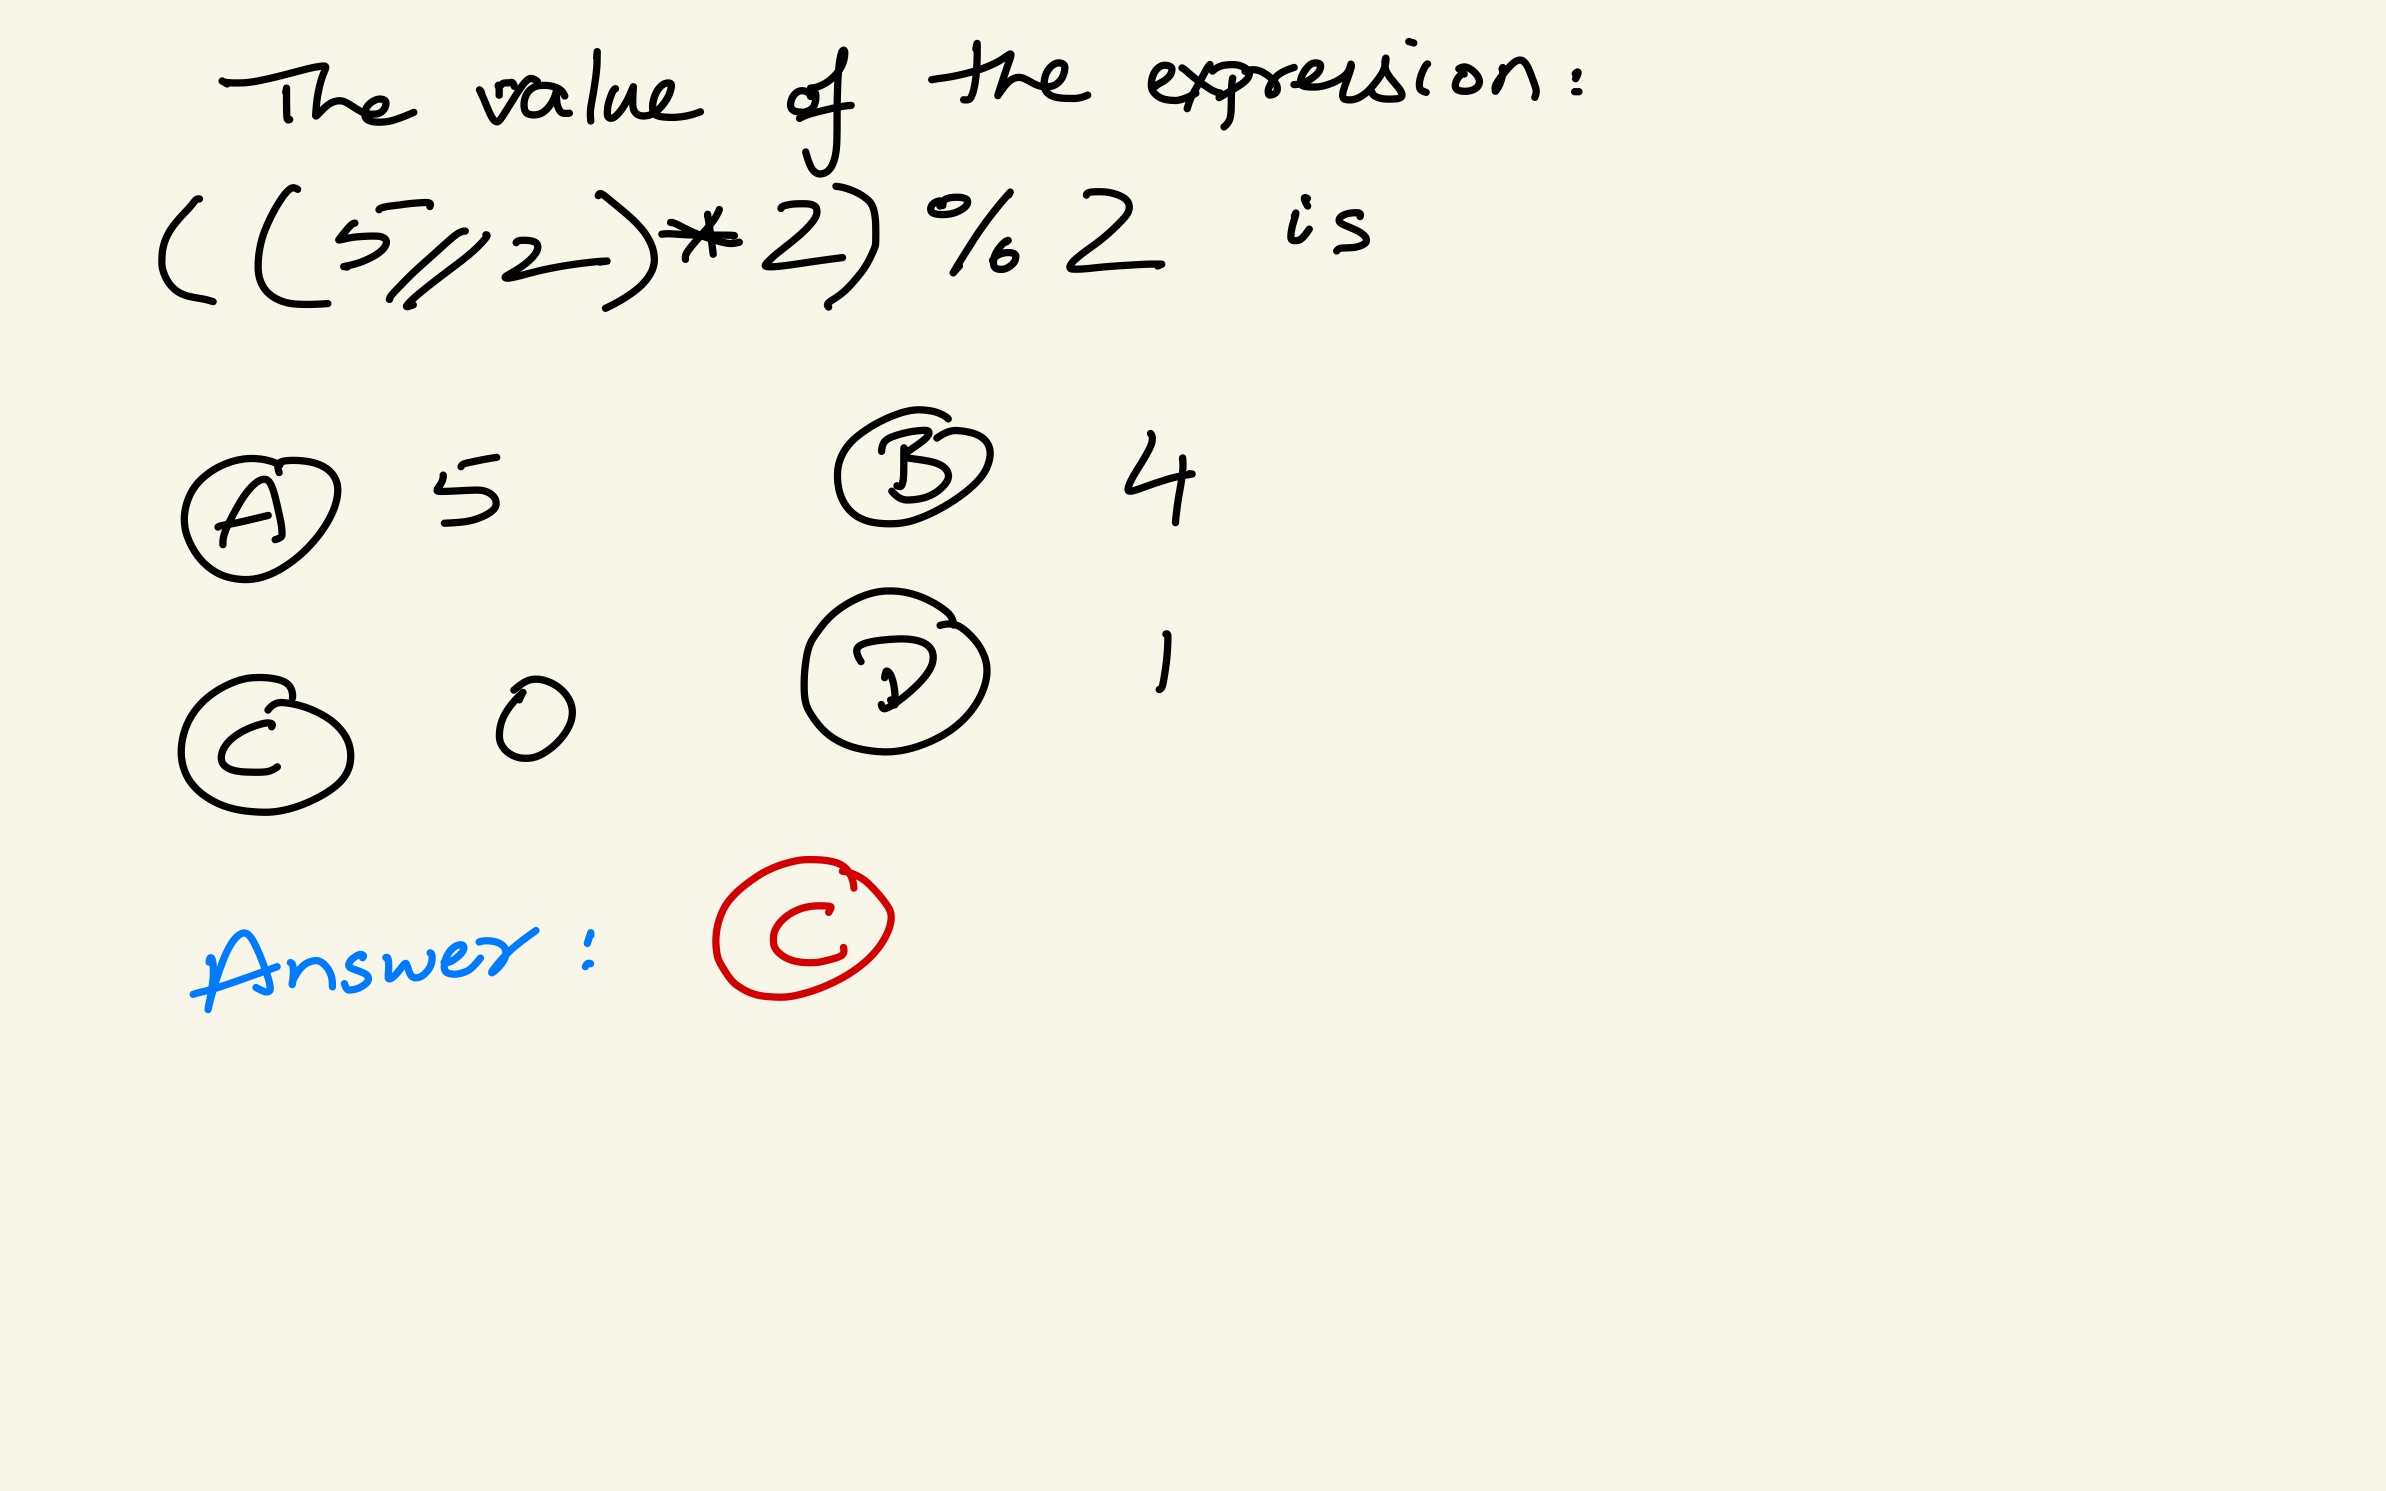 The value of the expression:
((5//2)*2)%2 is
A 5 B 4
C 0 D 1
Answer: C